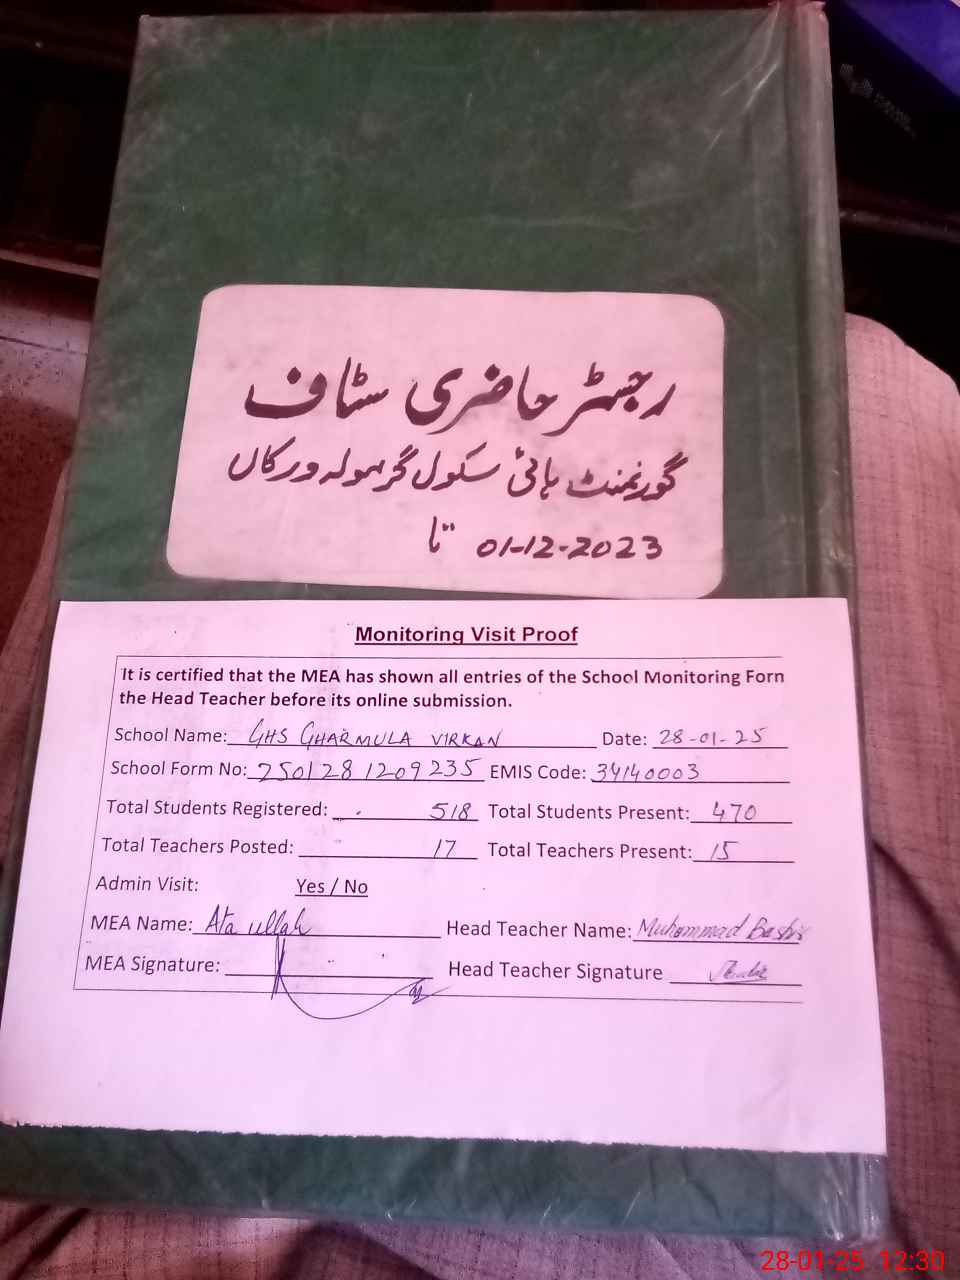 رجسٹر حاضری سٹاف
گورنمنٹ ہائی سکول گرمولہ ورکاں
01-12-2023 تا
Monitoring Visit Proof
It is certified that the MEA has shown all entries of the School Monitoring Form
the Head Teacher before its online submission.
School Name: GHS GHARMULA VIRKAN Date: 28-01-25
School Form No: 2501281209235 EMIS Code: 34140003
Total Students Registered: 518 Total Students Present: 470
Total Teachers Posted: 17 Total Teachers Present: 15
Admin Visit: Yes / No
MEA Name: Ata ullah Head Teacher Name: Muhammad Bashir
MEA Signature: Head Teacher Signature
28-01-25 12:30